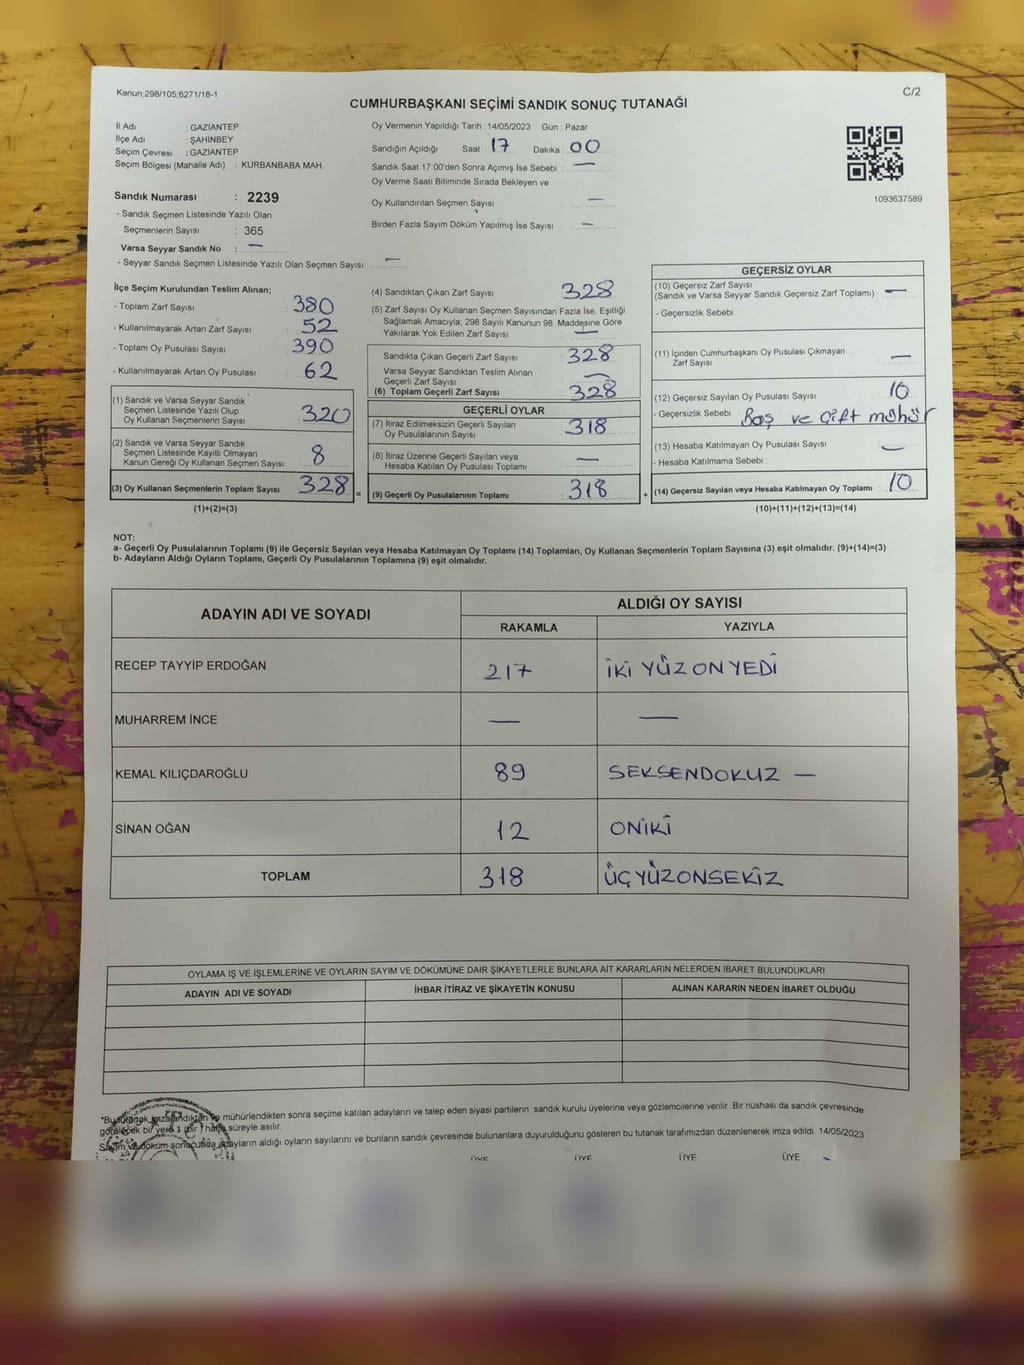 Kanun;298/105,6271/18-1
C/2
CUMHURBAŞKANI SEÇİMİ SANDIK SONUÇ TUTANAĞI
İl Adı : GAZİANTEP
İlçe Adı : ŞAHİNBEY
Seçim Çevresi : GAZİANTEP
Seçim Bölgesi (Mahalle Adı) : KURBANBABA MAH.
Sandık Numarası : 2239
- Sandık Seçmen Listesinde Yazılı Olan
Seçmenlerin Sayısı : 365
Varsa Seyyar Sandık No : —
- Seyyar Sandık Seçmen Listesinde Yazılı Olan Seçmen Sayısı: —
Oy Vermenin Yapıldığı Tarih : 14/05/2023 Gün : Pazar
Sandığın Açıldığı Saat : 17 Dakika : 00
Sandık Saat 17:00'den Sonra Açımış İse Sebebi : —
Oy Verme Saati Bitiminde Sırada Bekleyen ve
Oy Kullandırılan Seçmen Sayısı : —
Birden Fazla Sayım Döküm Yapılmış İse Sayısı : —
1093637589
İlçe Seçim Kurulundan Teslim Alınan;
- Toplam Zarf Sayısı : 380
- Kullanılmayarak Artan Zarf Sayısı : 52
- Toplam Oy Pusulası Sayısı : 390
- Kullanılmayarak Artan Oy Pusulası : 62
(1) Sandık ve Varsa Seyyar Sandık
Seçmen Listesinde Yazılı Olup
Oy Kullanan Seçmenlerin Sayısı : 320
(2) Sandık ve Varsa Seyyar Sandık
Seçmen Listesinde Kayıtlı Olmayan
Kanun Gereği Oy Kullanan Seçmen Sayısı : 8
(3) Oy Kullanan Seçmenlerin Toplam Sayısı : 328
(1)+(2)=(3)
=
(4) Sandıktan Çıkan Zarf Sayısı : 328
(5) Zarf Sayısı Oy Kullanan Seçmen Sayısından Fazla İse, Eşitliği
Sağlamak Amacıyla; 298 Sayılı Kanunun 98. Maddesine Göre
Yakılarak Yok Edilen Zarf Sayısı : —
Sandıkta Çıkan Geçerli Zarf Sayısı : 328
Varsa Seyyar Sandıktan Teslim Alınan
Geçerli Zarf Sayısı : —
(6) Toplam Geçerli Zarf Sayısı : 328
GEÇERLİ OYLAR
(7) İtiraz Edilmeksizin Geçerli Sayılan
Oy Pusulalarının Sayısı : 318
(8) İtiraz Üzerine Geçerli Sayılan veya
Hesaba Katılan Oy Pusulası Toplamı : —
(9) Geçerli Oy Pusulalarının Toplamı : 318
+
GEÇERSİZ OYLAR
(10) Geçersiz Zarf Sayısı
(Sandık ve Varsa Seyyar Sandık Geçersiz Zarf Toplamı) : —
- Geçersizlik Sebebi :
(11) İçinden Cumhurbaşkanı Oy Pusulası Çıkmayan
Zarf Sayısı : —
(12) Geçersiz Sayılan Oy Pusulası Sayısı : 10
- Geçersizlik Sebebi : Boş ve Çift mühür
(13) Hesaba Katılmayan Oy Pusulası Sayısı : —
- Hesaba Katılmama Sebebi :
(14) Geçersiz Sayılan veya Hesaba Katılmayan Oy Toplamı : 10
(10)+(11)+(12)+(13)=(14)
NOT:
a- Geçerli Oy Pusulalarının Toplamı (9) ile Geçersiz Sayılan veya Hesaba Katılmayan Oy Toplamı (14) Toplamları, Oy Kullanan Seçmenlerin Toplam Sayısına (3) eşit olmalıdır. (9)+(14)=(3)
b- Adayların Aldığı Oyların Toplamı, Geçerli Oy Pusulalarının Toplamına (9) eşit olmalıdır.
ADAYIN ADI VE SOYADI ALDIĞI OY SAYISI
RAKAMLA YAZIYLA
RECEP TAYYİP ERDOĞAN 217 İKİ YÜZ ONYEDİ
MUHARREM İNCE — —
KEMAL KILIÇDAROĞLU 89 SEKSENDOKUZ —
SİNAN OĞAN 12 ONİKİ
TOPLAM 318 ÜÇYÜZONSEKİZ
OYLAMA İŞ VE İŞLEMLERİNE VE OYLARIN SAYIM VE DÖKÜMÜNE DAİR ŞİKAYETLERLE BUNLARA AİT KARARLARIN NELERDEN İBARET BULUNDUKLARI
ADAYIN ADI VE SOYADI İHBAR İTİRAZ VE ŞİKAYETİN KONUSU ALINAN KARARIN NEDEN İBARET OLDUĞU
*Bu tutanak imzalandıktan ve mühürlendikten sonra seçime katılan adayların ve talep eden siyasi partilerin sandık kurulu üyelerine veya gözlemcilerine verilir. Bir nüshası da sandık çevresinde
görülecek bir yere 1 (bir) hafta süreyle asılır.
Sayım ve döküm sonucunda adayların aldığı oyların sayılarını ve bunların sandık çevresinde bulunanlara duyurulduğunu gösteren bu tutanak tarafımızdan düzenlenerek imza edildi. 14/05/2023
ÜYE ÜYE ÜYE ÜYE